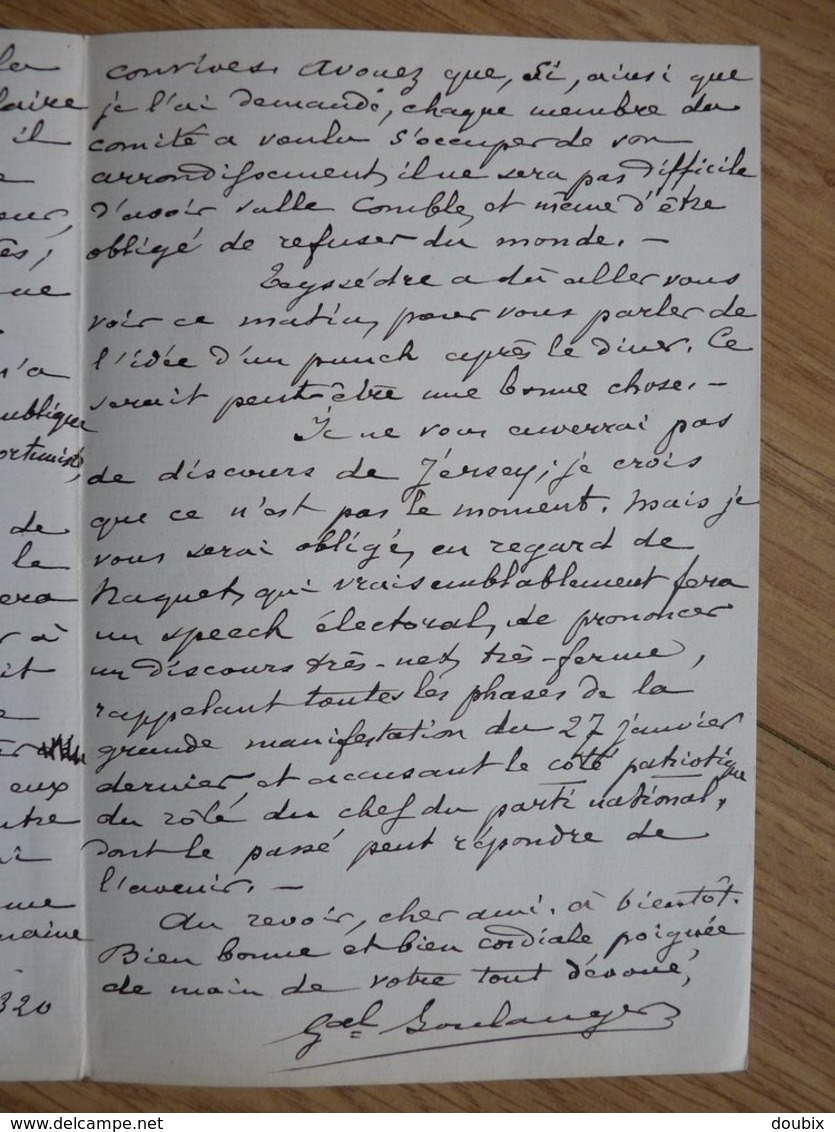 la
laire
il
e
eur,
ès,
ue
n'a
ublique
ortuniste,
de
le
era
r à
it
e
er
eux
utre
ir
me
maine
320
convives. Avouez que, si, ainsi que
je l'ai demandé, chaque membre du
comité a voulu s'occuper de son
arrondissement, il ne sera pas difficile
d'avoir salle comble, et même d'être
obligé de refuser du monde. —
Teyssèdre a dû aller vous
voir ce matin, pour vous parler de
l'idée d'un punch après le dîner. Ce
serait peut-être une bonne chose. —
Je ne vous enverrai pas
de discours de Jersey; je crois
que ce n'est pas le moment. Mais je
vous serai obligé, en regard de
Naquet, qui vraisemblablement fera
un speech électoral, de prononcer
un discours très-net, très-ferme,
rappelant toutes les phases de la
grande manifestation du 27 janvier
dernier, et accusant le côté patriotique
du rôle du chef du parti national,
dont le passé peut répondre de
l'avenir. —
Au revoir, cher ami. à bientôt.
Bien bonne et bien cordiale poignée
de main de votre tout dévoué,
Gal Boulanger
delcampe.net
doubix